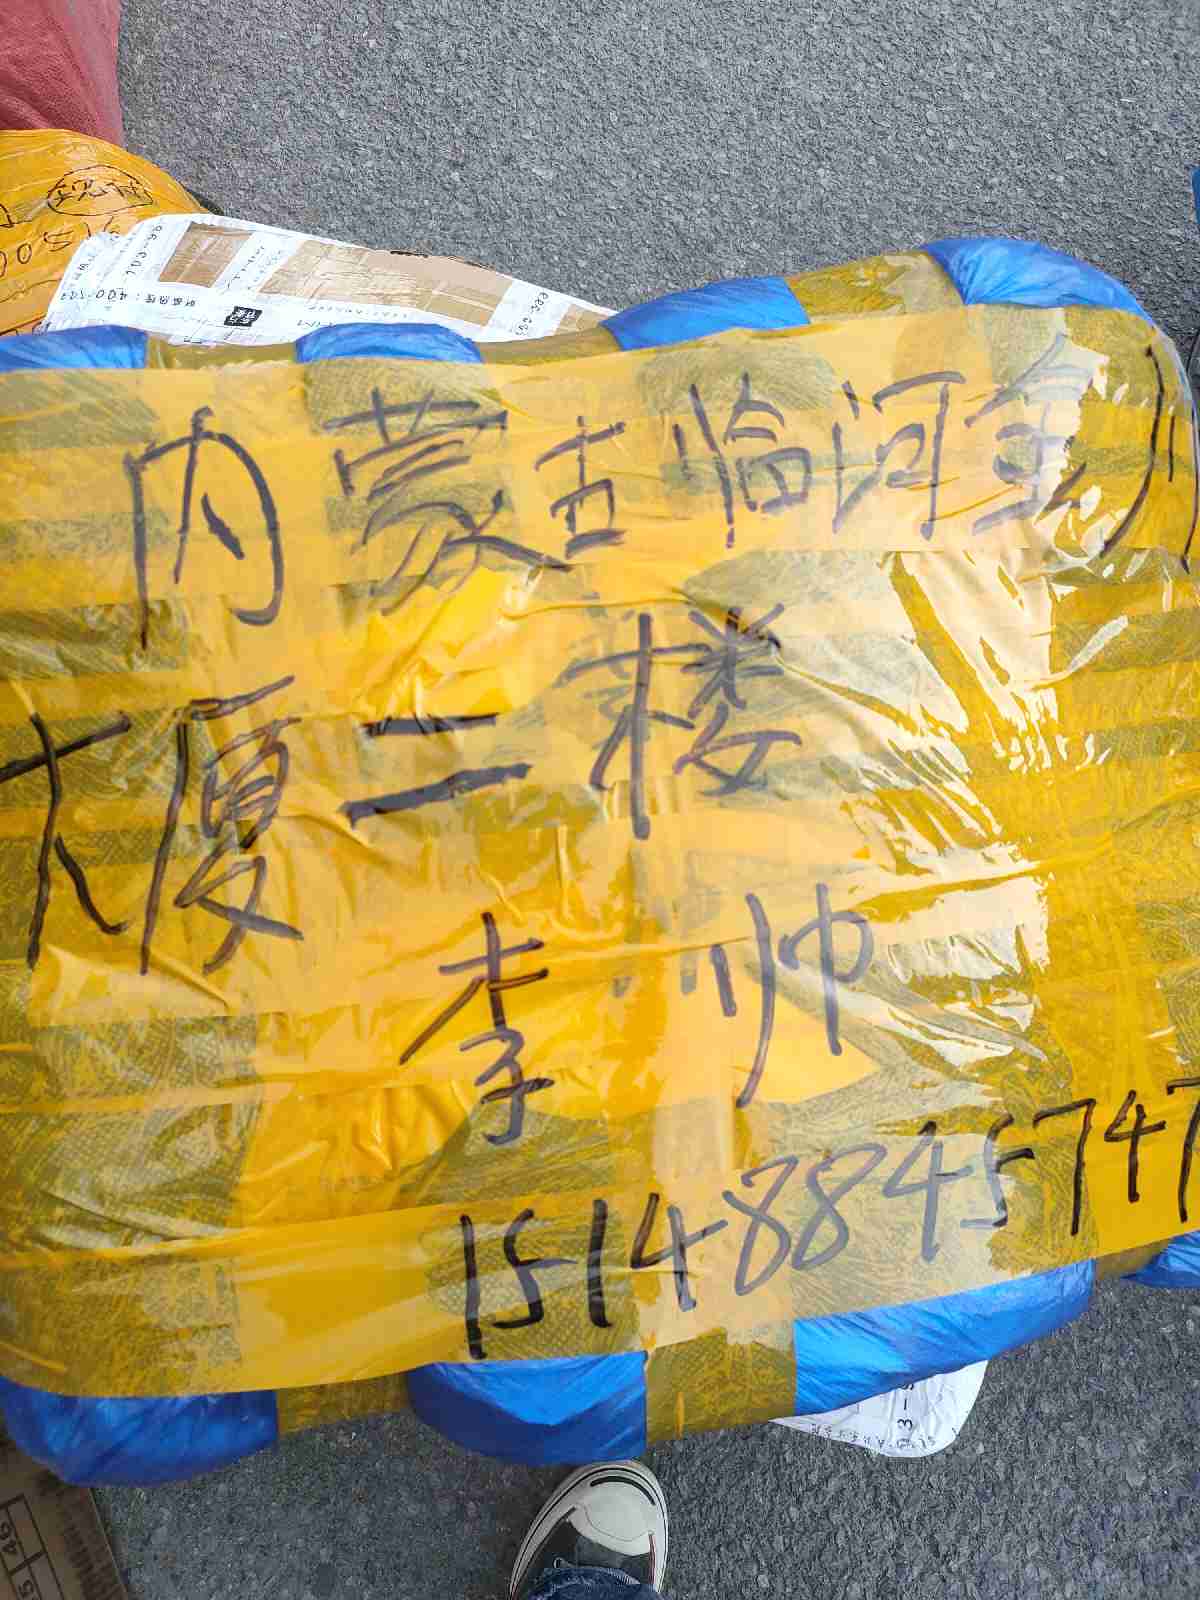 内蒙古临河金川
大厦二楼
李帅
15148845747